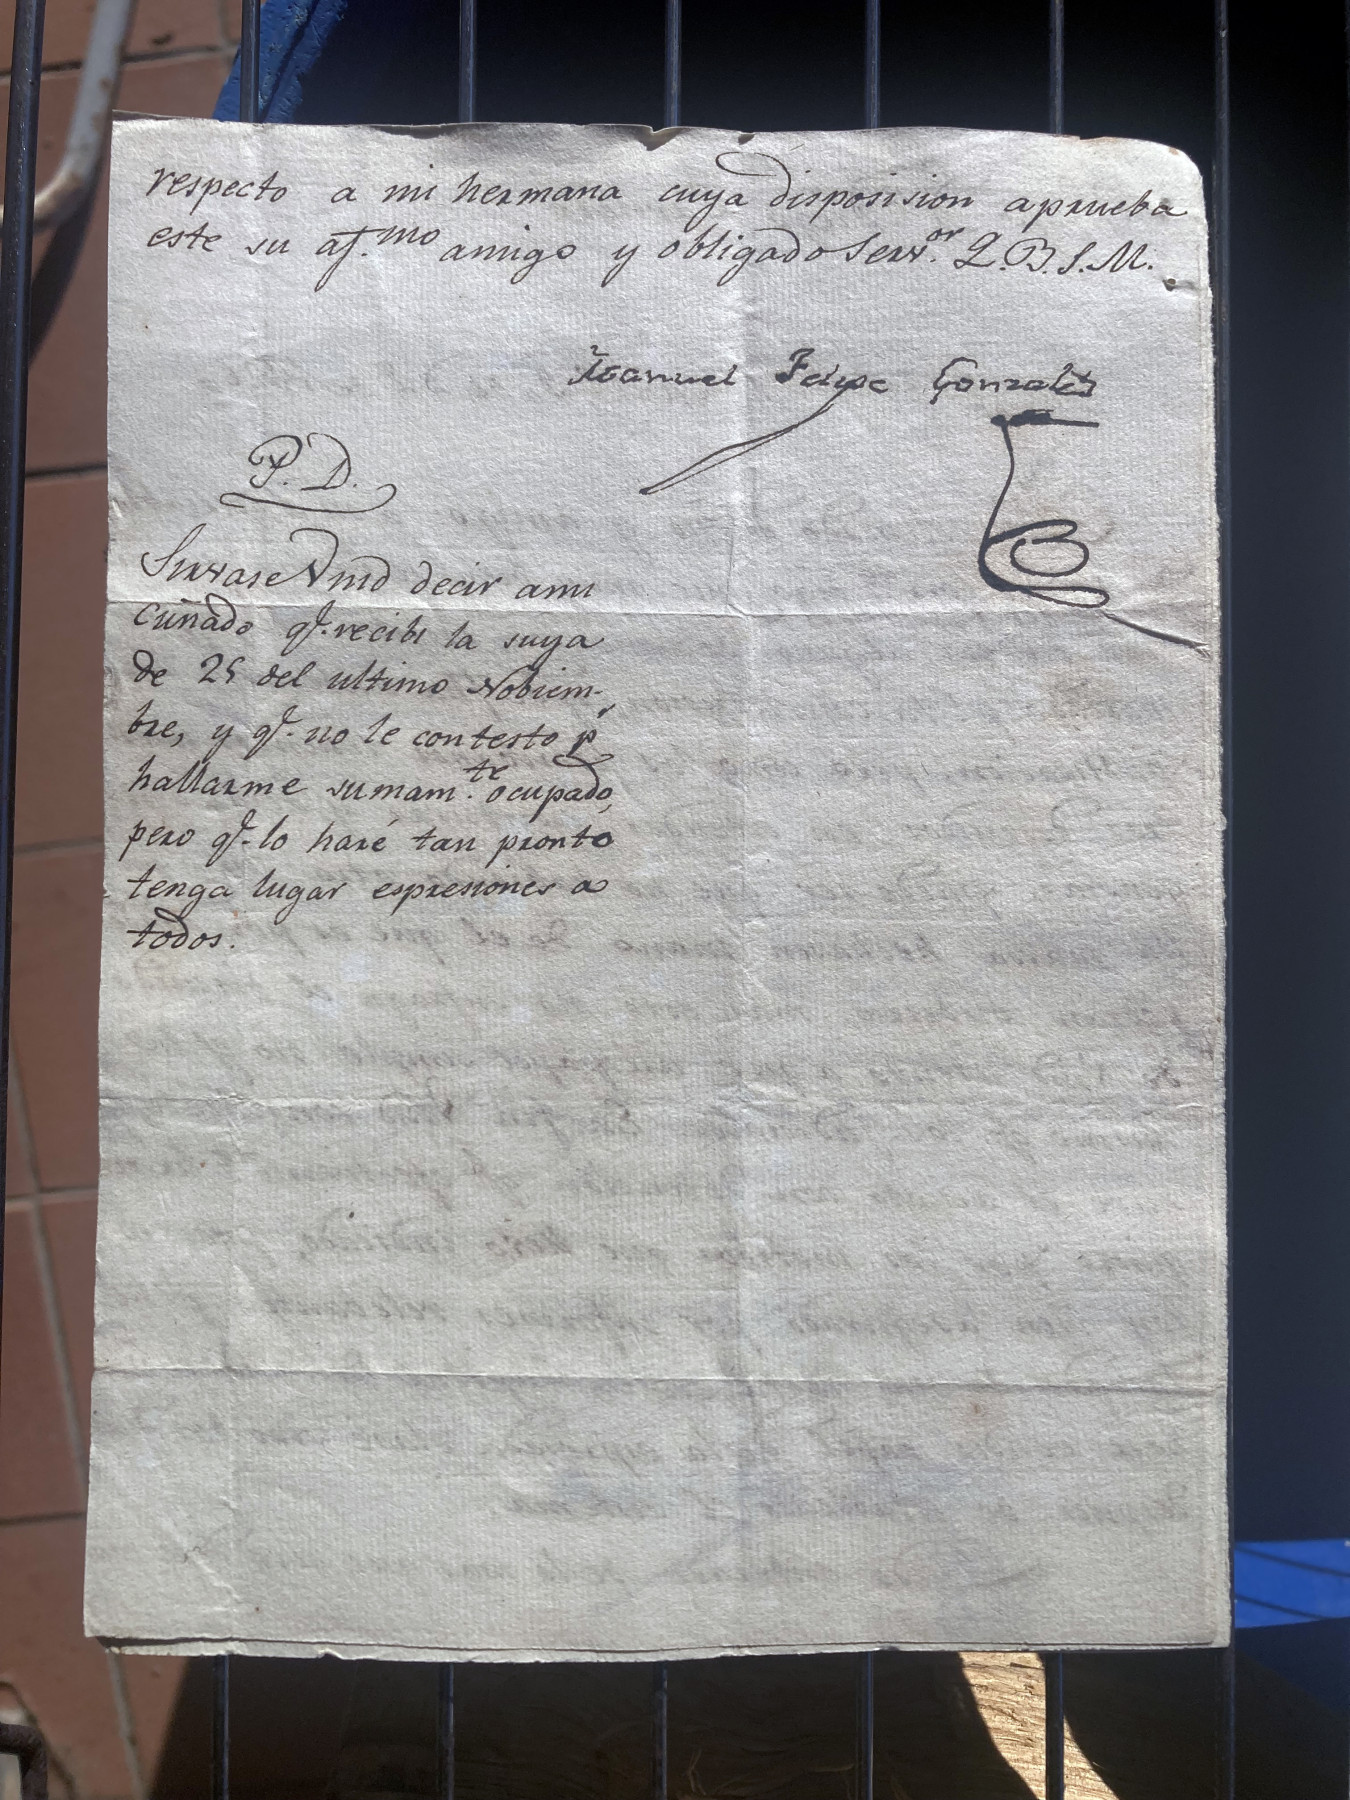 respecto a mi hermana cuya disposision aprueba
este su af.mo amigo y obligado Serv.or Q.B.S.M.
Manuel Felipe Gonzales
P. D.
Sirvase Vmd decir ami
cuñado qe. recibi la suya
de 25 del ultimo Nobiem-
bre, y qe. no le contesto pr.
hallarme sumam.te ocupado,
pero qe. lo haré tan pronto
tenga lugar espresiones a
todos.